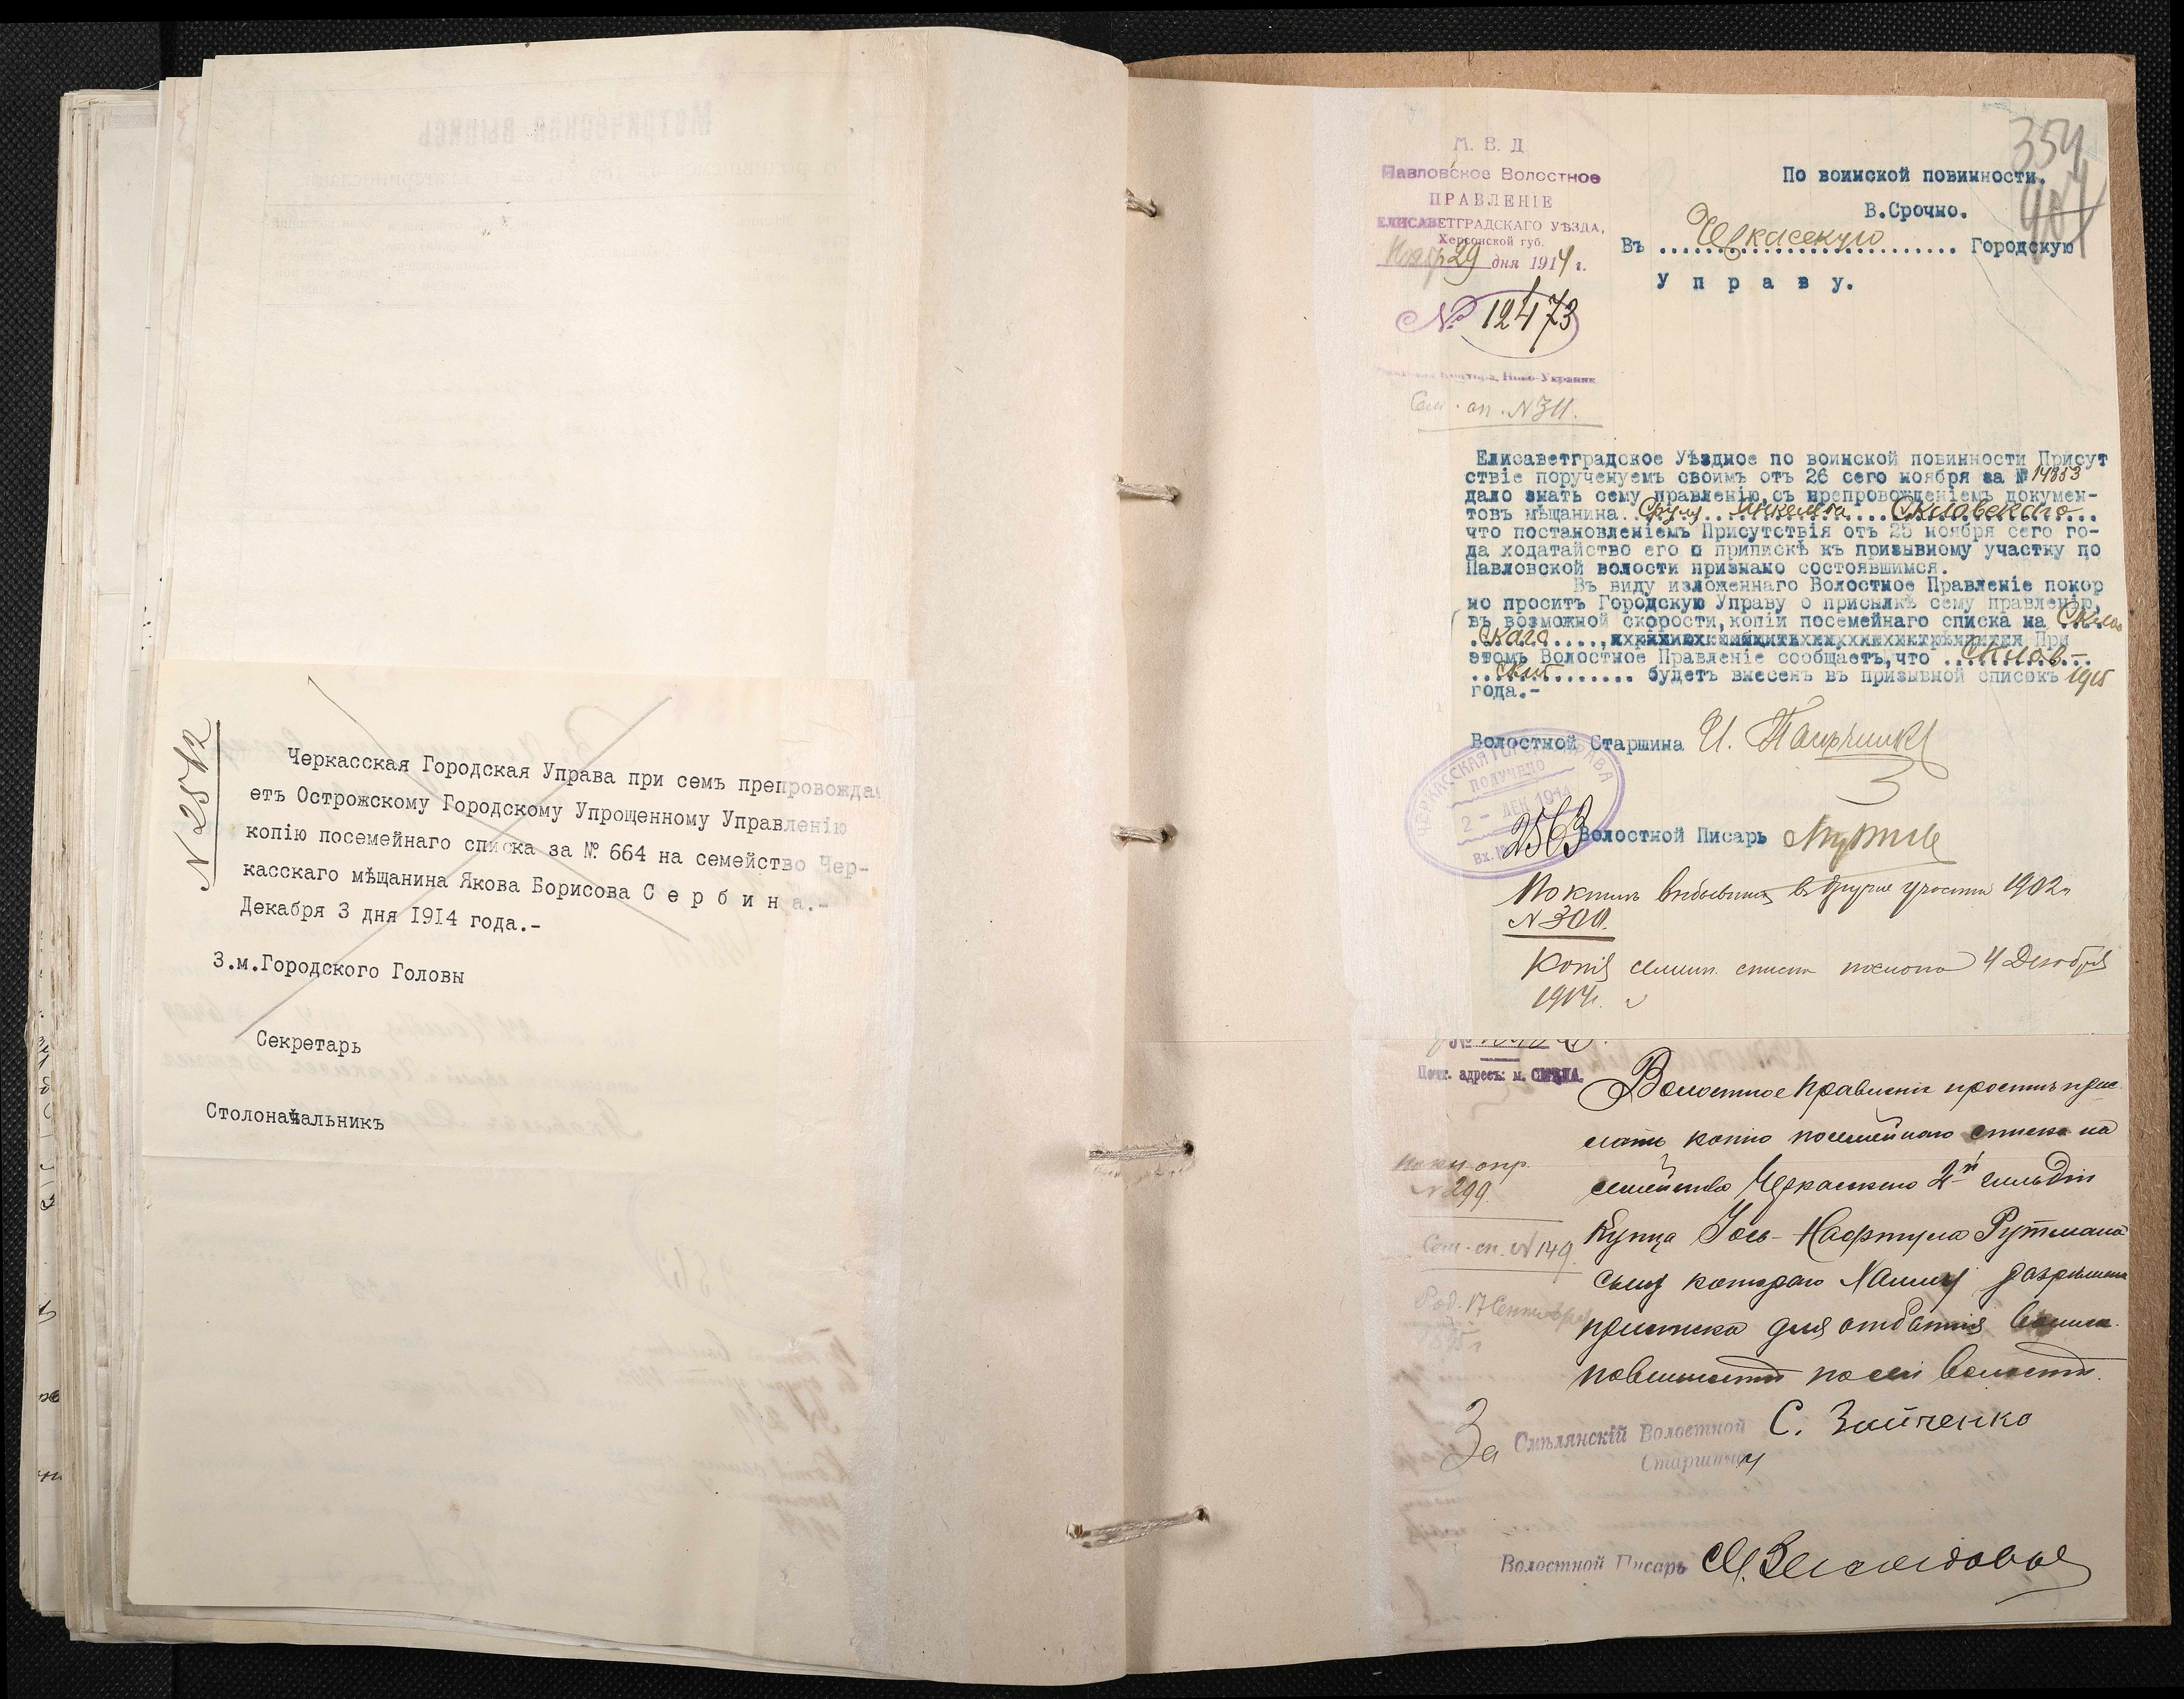 N 2512
Черкасская Городская Управа при семъ препровожда
етъ Острожскому Городскому Упрощенному Управленію
копію посемейнаго списка за № 664 на семейство Чер-
касскаго мѣщанина Якова Борисова С е р б и н а.-
Декабря 3 дня 1914 года.-
З.м.Городского Головы
Секретарь
Столоначальникъ
354
М. В. Д
Павловское Волостное
ПРАВЛЕНІЕ
ЕЛИСАВЕТГРАДСКАГО УѢЗДА,
Херсонской губ.
Нояб 29 дня 1914 г.
№ 12473
Сем. сп. N 311.
По воинской повинности.
В.Срочно.
Въ Черкасскую Городскую
У п р а в у.
Елисаветградское Уѣздное по воинской повинности Присут
ствіе порученуемъ своимъ отъ 26 сего ноября за № 14853
дало знать сему правленію,съ препровожденіемъ докумен-
товъ мѣщанина Сруля Янкелева
что постановленіемъ Присутствія отъ 25 ноября сего го-
да ходатайство его о припискѣ къ призывному участку по
Павловской волости признано состоявшимся.
Въ виду изложеннаго Волостное Правленіе покор
но проситъ Городскую Управу о присылкѣ сему правленію,
въ возможной скорости,копіи посемейнаго списка на
скаго При
этомъ Волостное Правленіе сообщаетъ,что
скій будетъ внесенъ въ призывной списокъ 1915
года.-
Волостной Старшина И.
ЧЕРКАССКАЯ ГОРОДСКАЯ УПРАВА
ПОЛУЧЕНО
2 - ДЕК 1914
Вх. № 2563
Волостной Писарь
По книгѣ выбывшихъ въ другие участки 1902 г
N 300.
Копія семейн. списка послана 4 Декабря
1914 г.
Почт. адресъ: м. СМѢЛА.
Волостное Правленіе проситъ при
слать копію посемейнаго списка на
семейство Черкасскаго 2й гильдіи
Купца Іось-Нафтула Рутмана
сыну котораго разрѣшена
приписка для отбытія воинск.
повинности по сей волости.
N 299.
Сем. сп. N 149.
Род. 17 Сентября
За Смѣлянскій Волостной
Старшина С. Зайченко
Волостной Писарь